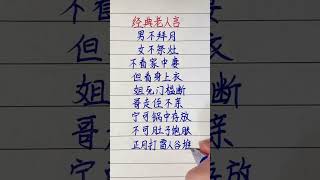 经典老人言
男不拜月
女不祭灶
不看家中妻
但看身上衣
姐死门槛断
哥走侄不亲
宁可锅中存放
不可肚子饱胀
正月打雷人谷堆